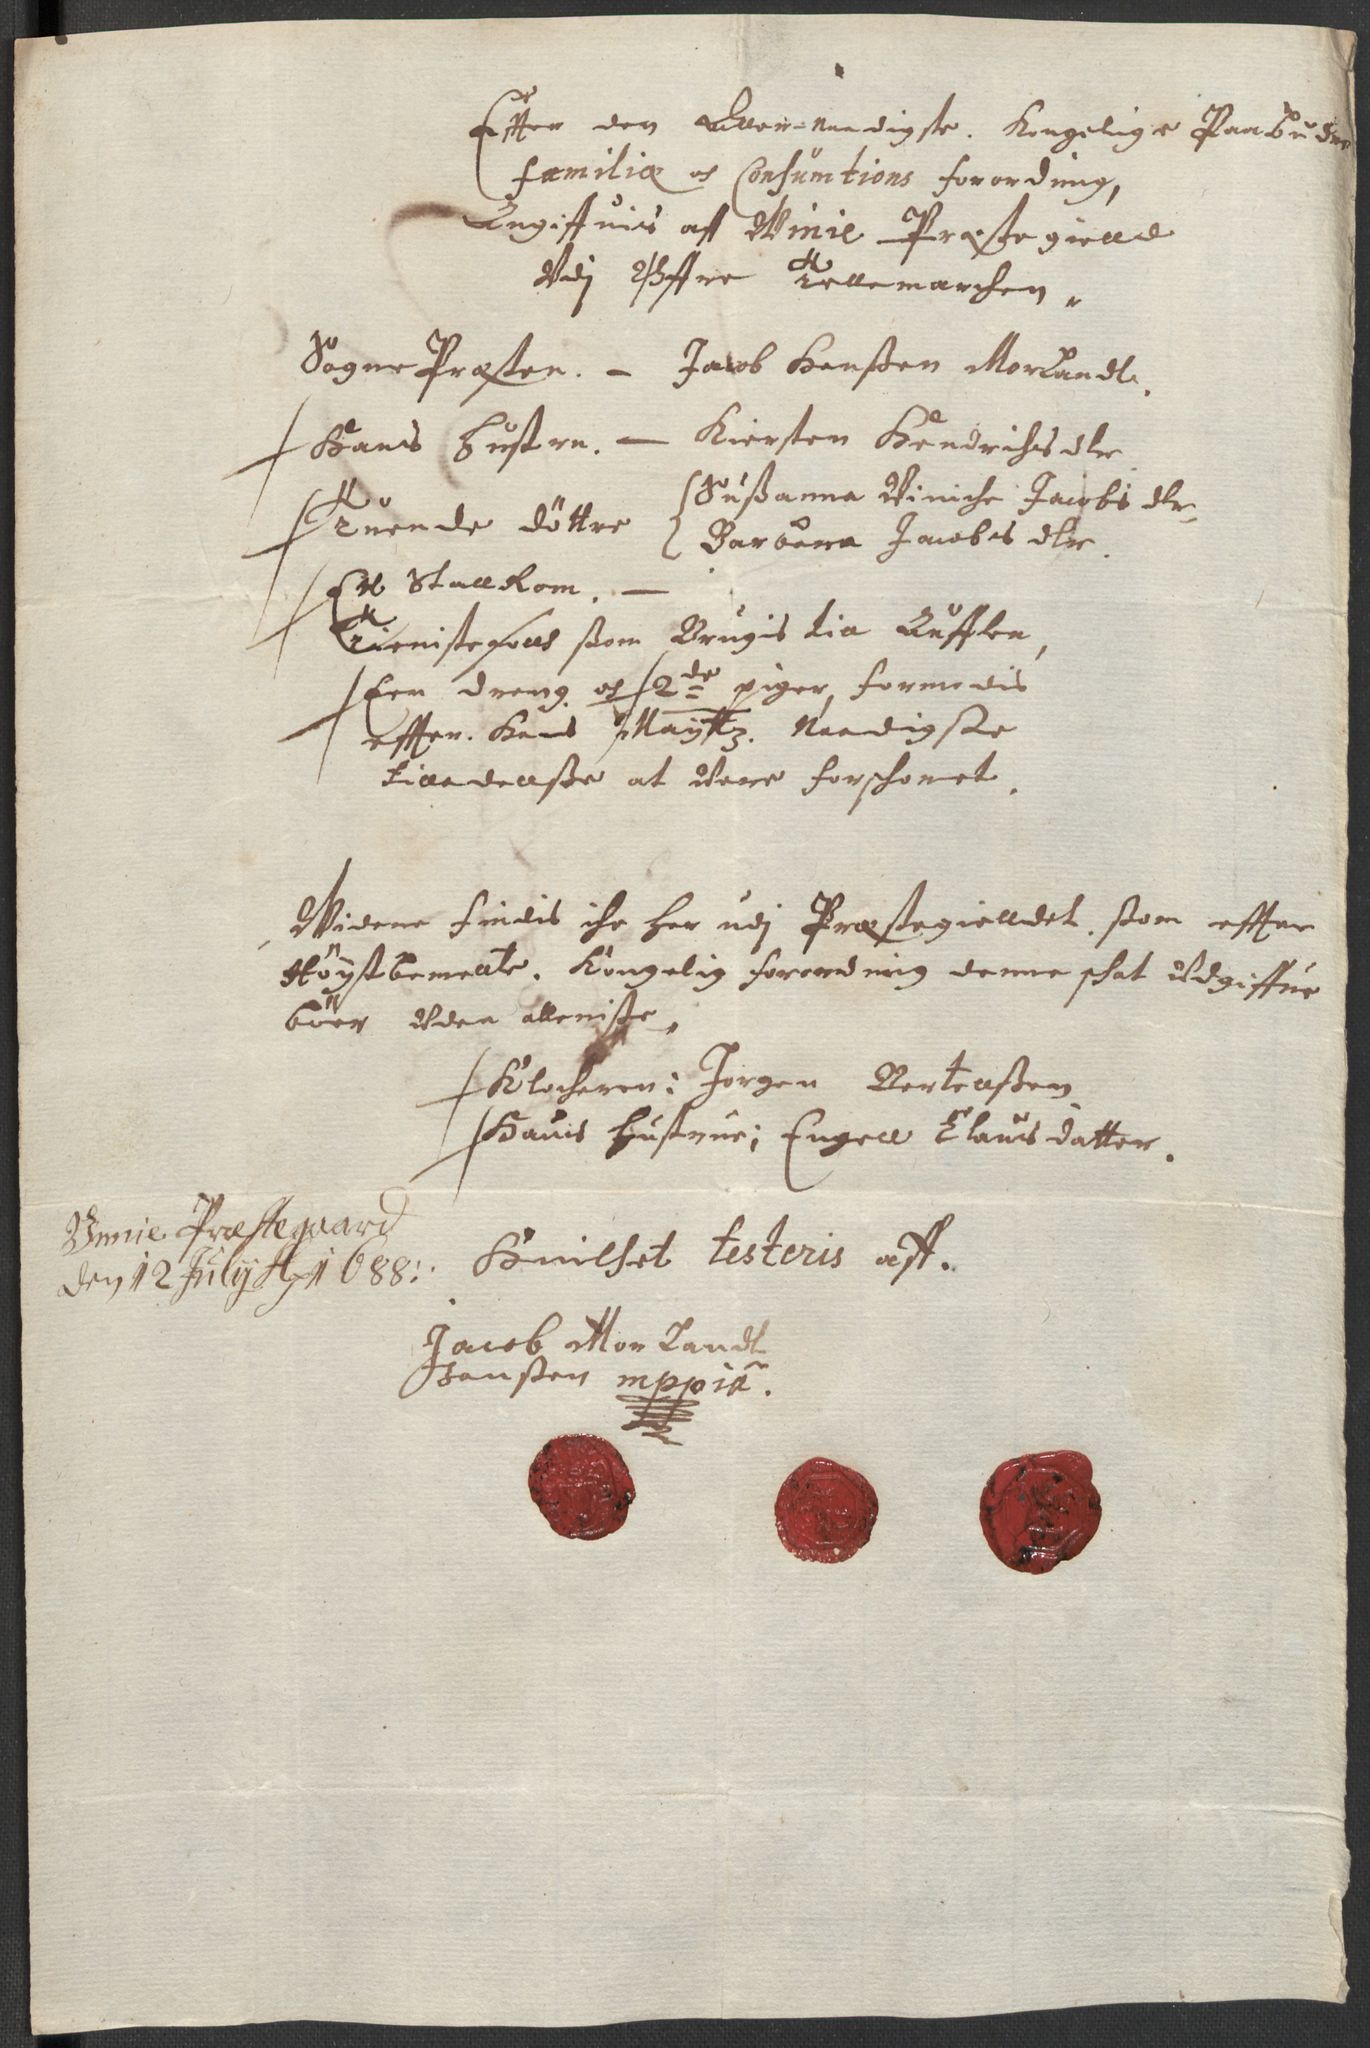 Effter den Aller-naadigste. Kongelige Paabudne
familiæ oc Consumtions forordning,
Angiffuis aff Winie Præstegield
Vdj Øffre Tellemarchen,
SognePræsten. — Jacob Hanßen Morlandt.
Hans Hustru. — Kiersten Hendrichs dtr
Tuende döttre Sußanna Viniche Jacobs dtr,
Barbara Jacobs dtr.
Et StallRom. —
Tienistefolk som Brugis til Auflen,
Een dreng oc 2de piger, formodis
effter. Hans Maÿttz. Naadigste
Tilladelße at være forschonet.
Widere findis iche her udj Præstegieldet. som effter
Höÿstbemelte. Kongelig forordning denne schat Udgiffue
böer Uden alleniste,
Klocheren: Jörgen Bertelßen
Hans Hustrue; Engell Clausdatter.
Vinie Præstegaard
den 12 Julÿ Ao 1688:
Huilchet testeris aff.
Jacob Morlandt
Hanßen mppia.